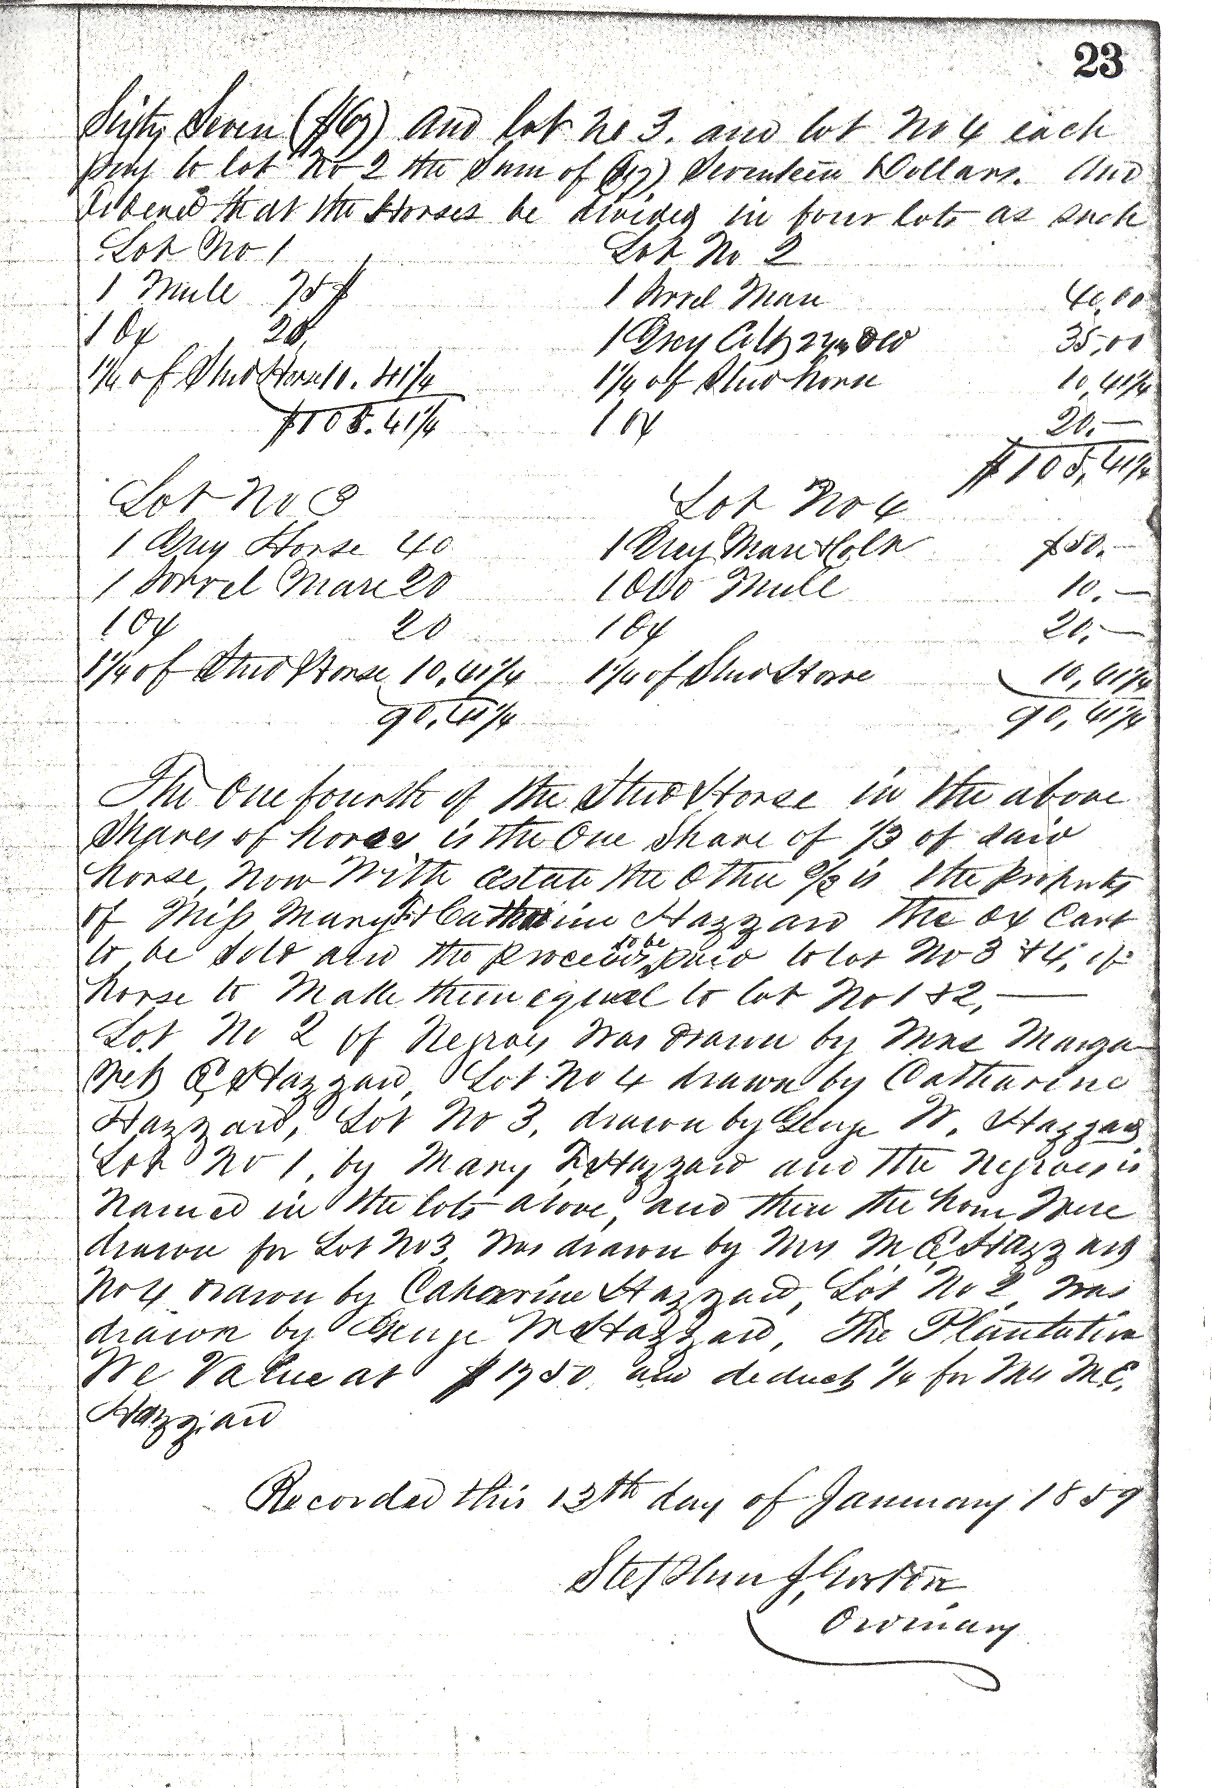 23
Sixty Seven ($67) and lot No 3. and lot No 4 each
pay to lot No 2 the Sum of ($17) Seventeen Dollars. And
Ordered that the Horses be divided in four lots as such
Lot No 1 Lot No 2
1 Mule 75$ 1 Sorrel Mare 40,00
1 Ox 20, 1 Grey Colt 2 yrs Old 35,00
1/4 of Stud Horse 10.41 1/4 1/4 of Stud horse 10,41 1/4
$105.41 1/4 1 Ox 20.—
$105,41 1/4
Lot No 3 Lot No 4
1 Grey Horse 40 1 Grey Mare & Colt $50.—
1 Sorrel Mare 20 1 Old Mule 10.—
1 Ox 20 1 Ox 20.—
1/4 of Stud Horse 10,41 1/4 1/4 of Stud Horse 10,41 1/4
90,41 1/4 90,41 1/4
The One fourth of the Stud Horse in the above
Shares of horses is the One Share of 1/3 of said
horse, now With Estate the Other 2/3 is the property
of Miss Mary & Catharine Hazzard The Ox Cart
to be Sold and the proceeds to be paid to lot No 3 & 4, of
horse to Make them equal to lot No 1 & 2, —
Lot No 2 of Negroes Was drawn by Mrs Marga-
ret C Hazzard, Lot No 4 drawn by Catharine
Hazzard, Lot No 3, drawn by George W. Hazzard
Lot No 1, by Mary Hazzard and the Negroes is
Named in the lots above, and then the horse Were
drawn for Lot No 3, Was drawn by Mrs M C Hazzard
No 4 drawn by Catharine Hazzard, Lot No 2, was
drawn by George W Hazzard, The Plantation
We Value at $1750. and deduct 1/4 for Mrs M.C.
Hazzard
Recorded this 13th day of January 1859
Stephen J, Gorton
Ordinary